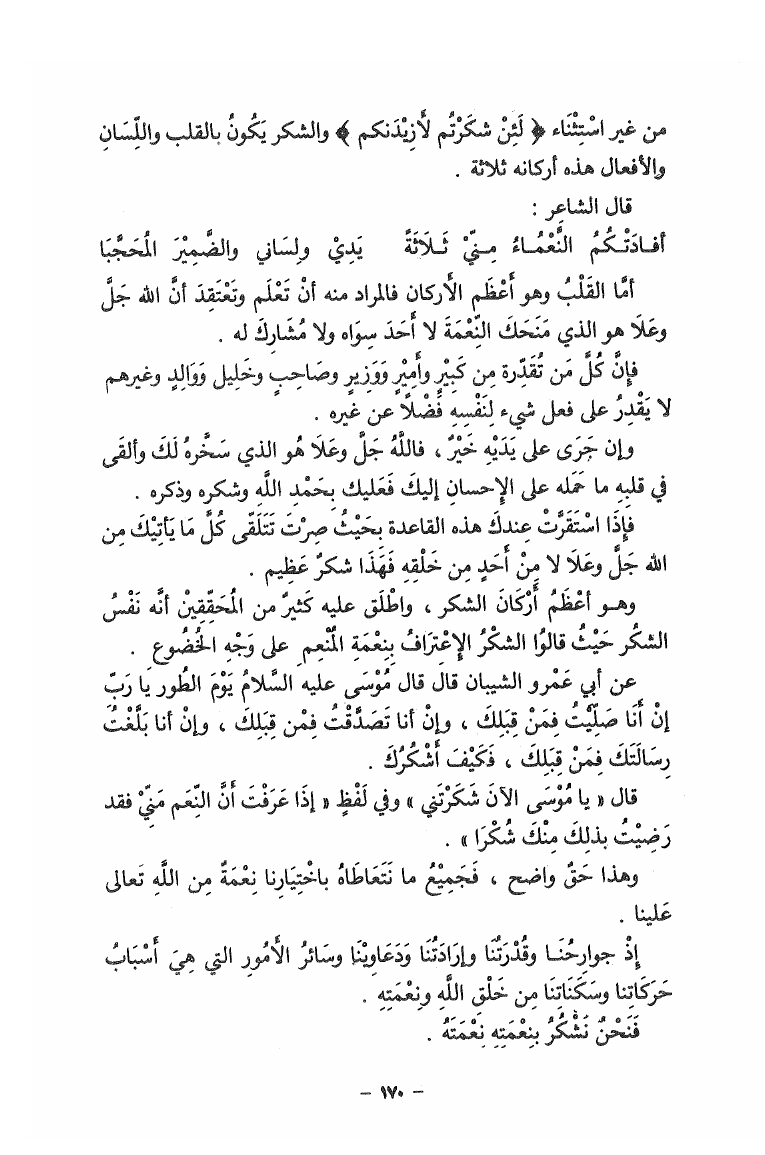 من غير اسْتِثْنَاء ﴿ لَئِنْ شكَرْتُم لأَزِيْدَنكم ﴾ والشكر يَكُونُ بالقلب واللّسَان
والأفعال هذه أركانه ثلاثة .
قال الشاعِر :
أفـادَتْـكُـمُ النَّعْمـاءُ مِـنيّْ ثَـلَاثَةً يَدِيْ ولِسَاني والضَّمِيْرَ المُحَجَّبَا
أمَّا القَلْبُ وهو أَعْظَم الأَركان فالمراد منه أنْ تَعْلَم وتَعْتَقِدَ أنَّ الله جَلَّ
وعَلَا هو الذي مَنَحَكَ النِّعْمَةَ لا أَحَدَ سِوَاه ولا مُشَارِكَ له .
فإنَّ كُلَّ مَن تُقَدّرة مِن كَبِيْرٍ وأمِيْرٍ وَوَزِيرٍ وصَاحِبٍ وخَلِيل وَوَالِدٍ وغيرهم
لا يَقْدِرُ على فعل شيء لِنَفْسِهِ فَضْلاً عن غيره .
وإن جَرَى على يَدَيْهِ خَيْرٌ ، فاللَّهُ جَلَّ وعَلَا هُو الذي سَخَّرهُ لَكَ وألقَى
في قلبِهِ ما حَمَله على الإِحسانِ إليكَ فَعَليك بِحَمْدِ اللَّهِ وشكره وذكره .
فإذَا اسْتَقَرَّتْ عِندكَ هذه القاعدة بِحَيْثُ صِرْتَ تَتَلَقَّى كُلَّ مَا يَأتِيْكَ مِن
الله جَلَّ وعَلَا لا مِنْ أَحَدٍ مِن خَلْقِهِ فَهَذَا شكرٌ عَظِيم .
وهـو أعْظَمُ أَرْكَانَ الشكر ، واطْلَق عليه كَثيرٌ من المُحَقِّقِيْنْ أنَّه نَفْسُ
الشكُر حَيْثُ قالوُا الشكْرُ الإعْتِرَافُ بِنِعْمَةِ المُنْعِم على وَجْهِ الخُضُوع .
عن أبي عَمْرو الشيبان قال قال مُوْسَى عليه السَّلامُ يَوْمَ الطُور يَا رَبّ
إنْ أَنَا صَلّيْتُ فَمِنْ قِبَلِكَ ، وإنْ أنا تَصَدَّقْتُ فمْن قِبَلِكَ ، وإنْ أنا بَلَّغْتُ
رِسَالَتَكَ فمِنْ قِبَلِكَ ، فَكَيْفَ أشْكُرُكَ .
قال « يا مُوْسَى الآنَ شَكَرْتَني » وفي لَفْظٍ « إذَا عَرَفْتَ أنَّ النِّعَم مَنيّْ فقد
رَضِيْتُ بذلِكَ مِنْكَ شُكْرَا » .
وهذا حَقٌ واضح ، فَجَمِيْعُ ما نَتَعَاطَاهُ باخْتِيَارِنا نِعْمَةٌ مِن اللَّهِ تَعالى
عَلينا .
إذْ جوارِحُنَـا وقُدْرَتُنَا وإرَادَتُنَا وَدَعَاوِيْنَا وسَائرُ الأمُور التي هِيَ أسْبَابُ
حَرَكَاتِنا وسَكَنَاتِنَا مِن خَلْقِ اللَّهِ ونِعْمَتِهِ .
فَنَحْنُ نَشْكُرُ بنِعْمَتِهِ نِعْمَتَهُ .
– ١٧٠ –